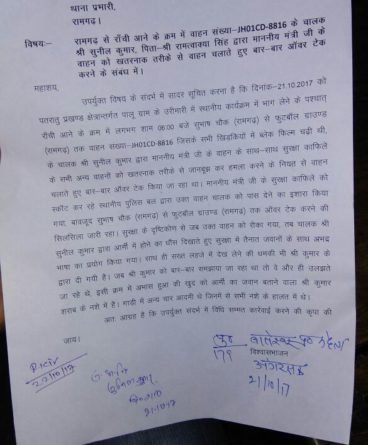 थाना प्रभारी,
रामगढ़।
विषय:- रामगढ़ से राँची आने के क्रम में वाहन संख्या-JH01CD-8816 के चालक
श्री सुनील कुमार, पिता-श्री रामत्वाक्या सिंह द्वारा माननीय मंत्री जी के
वाहन को खतरनाक तरीके से वाहन चलाते हुए बार-बार ऑवर टेक
करने के संबंध में।
महाशय,
उपर्युक्त विषय के संदर्भ में सादर सूचित करना है कि दिनांक-21.10.2017 को
पतरातु प्रखण्ड क्षेत्रान्तर्गत पालू ग्राम के उरीमारी में स्थानीय कार्यक्रम में भाग लेने के पश्चात्
राँची आने के क्रम में लगभग शाम 06:00 बजे सुभाष चौक (रामगढ़) से फूटबॉल ग्राउण्ड
(रामगढ़) तक वाहन संख्या-JH01CD-8816 जिसके सभी खिड़कियों में ब्लैक फिल्म चढ़ी थी,
के चालक श्री सुनील कुमार द्वारा माननीय मंत्री जी के वाहन के साथ-साथ सुरक्षा काफिले
के सभी अन्य वाहनों को खतरनाक तरीके से जानबुझ कर हमला करने के नियत से वाहन
चलाते हुए बार-बार ऑवर टेक किया जा रहा था। माननीय मंत्री जी के सुरक्षा काफिले को
स्कॉट कर रहे स्थानीय पुलिस बल द्वारा उक्त वाहन चालक को पास देने का इशारा किया
गया, बावजूद सुभाष चौक (रामगढ़) से फूटबॉल ग्राउण्ड (रामगढ़) तक ऑवर टेक करने की
सिलसिला जारी रहा। सुरक्षा के दृष्टिकोण से जब उक्त वाहन को रोका गया, तब चालक श्री
सुनील कुमार द्वारा आर्मी में होने का धौंस दिखाते हुए सुरक्षा में तैनात जवानों के साथ अभद्र
भाषा का प्रयोग किया गया। साथ ही सख्त लहजे में देख लेने की धमकी भी श्री कुमार के
द्वारा दी गयी है। जब श्री कुमार को बार-बार समझाया जा रहा था तो वे और ही उलझते
जा रहे थे, इसी क्रम में अभास हुआ की खुद को आर्मी का जवान बताने वाला श्री कुमार
शराब के नशे में है। गाडी में अन्य चार आदमी थे जिनमें से सभी नशे के हालत में थे।
अतः आग्रह है कि उपर्युक्त संदर्भ में विधि सम्मत कार्रवाई करने की कृपा की
जाय।
विश्वासभाजन
अंगरक्षक
21/10/17
22/10/17